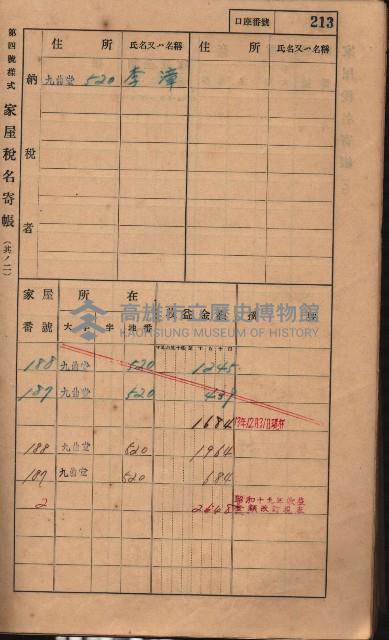 口座番號 213
第四號樣式 家屋稅名寄帳 (其ノ二)
納稅者
住所 氏名又ハ名稱 住所 氏名又ハ名稱
九曲堂 520 李濤
家屋番號 所在 大字 字 地番 收益金額 摘要
高雄市立歷史博物館
KAOHSIUNG MUSEUM OF HISTORY
188 九曲堂 520 1245
187 九曲堂 520 439
1684 13年12月31日現存
188 九曲堂 520 1964
187 九曲堂 520 684
2 2648 昭和十九年收益
金額改訂